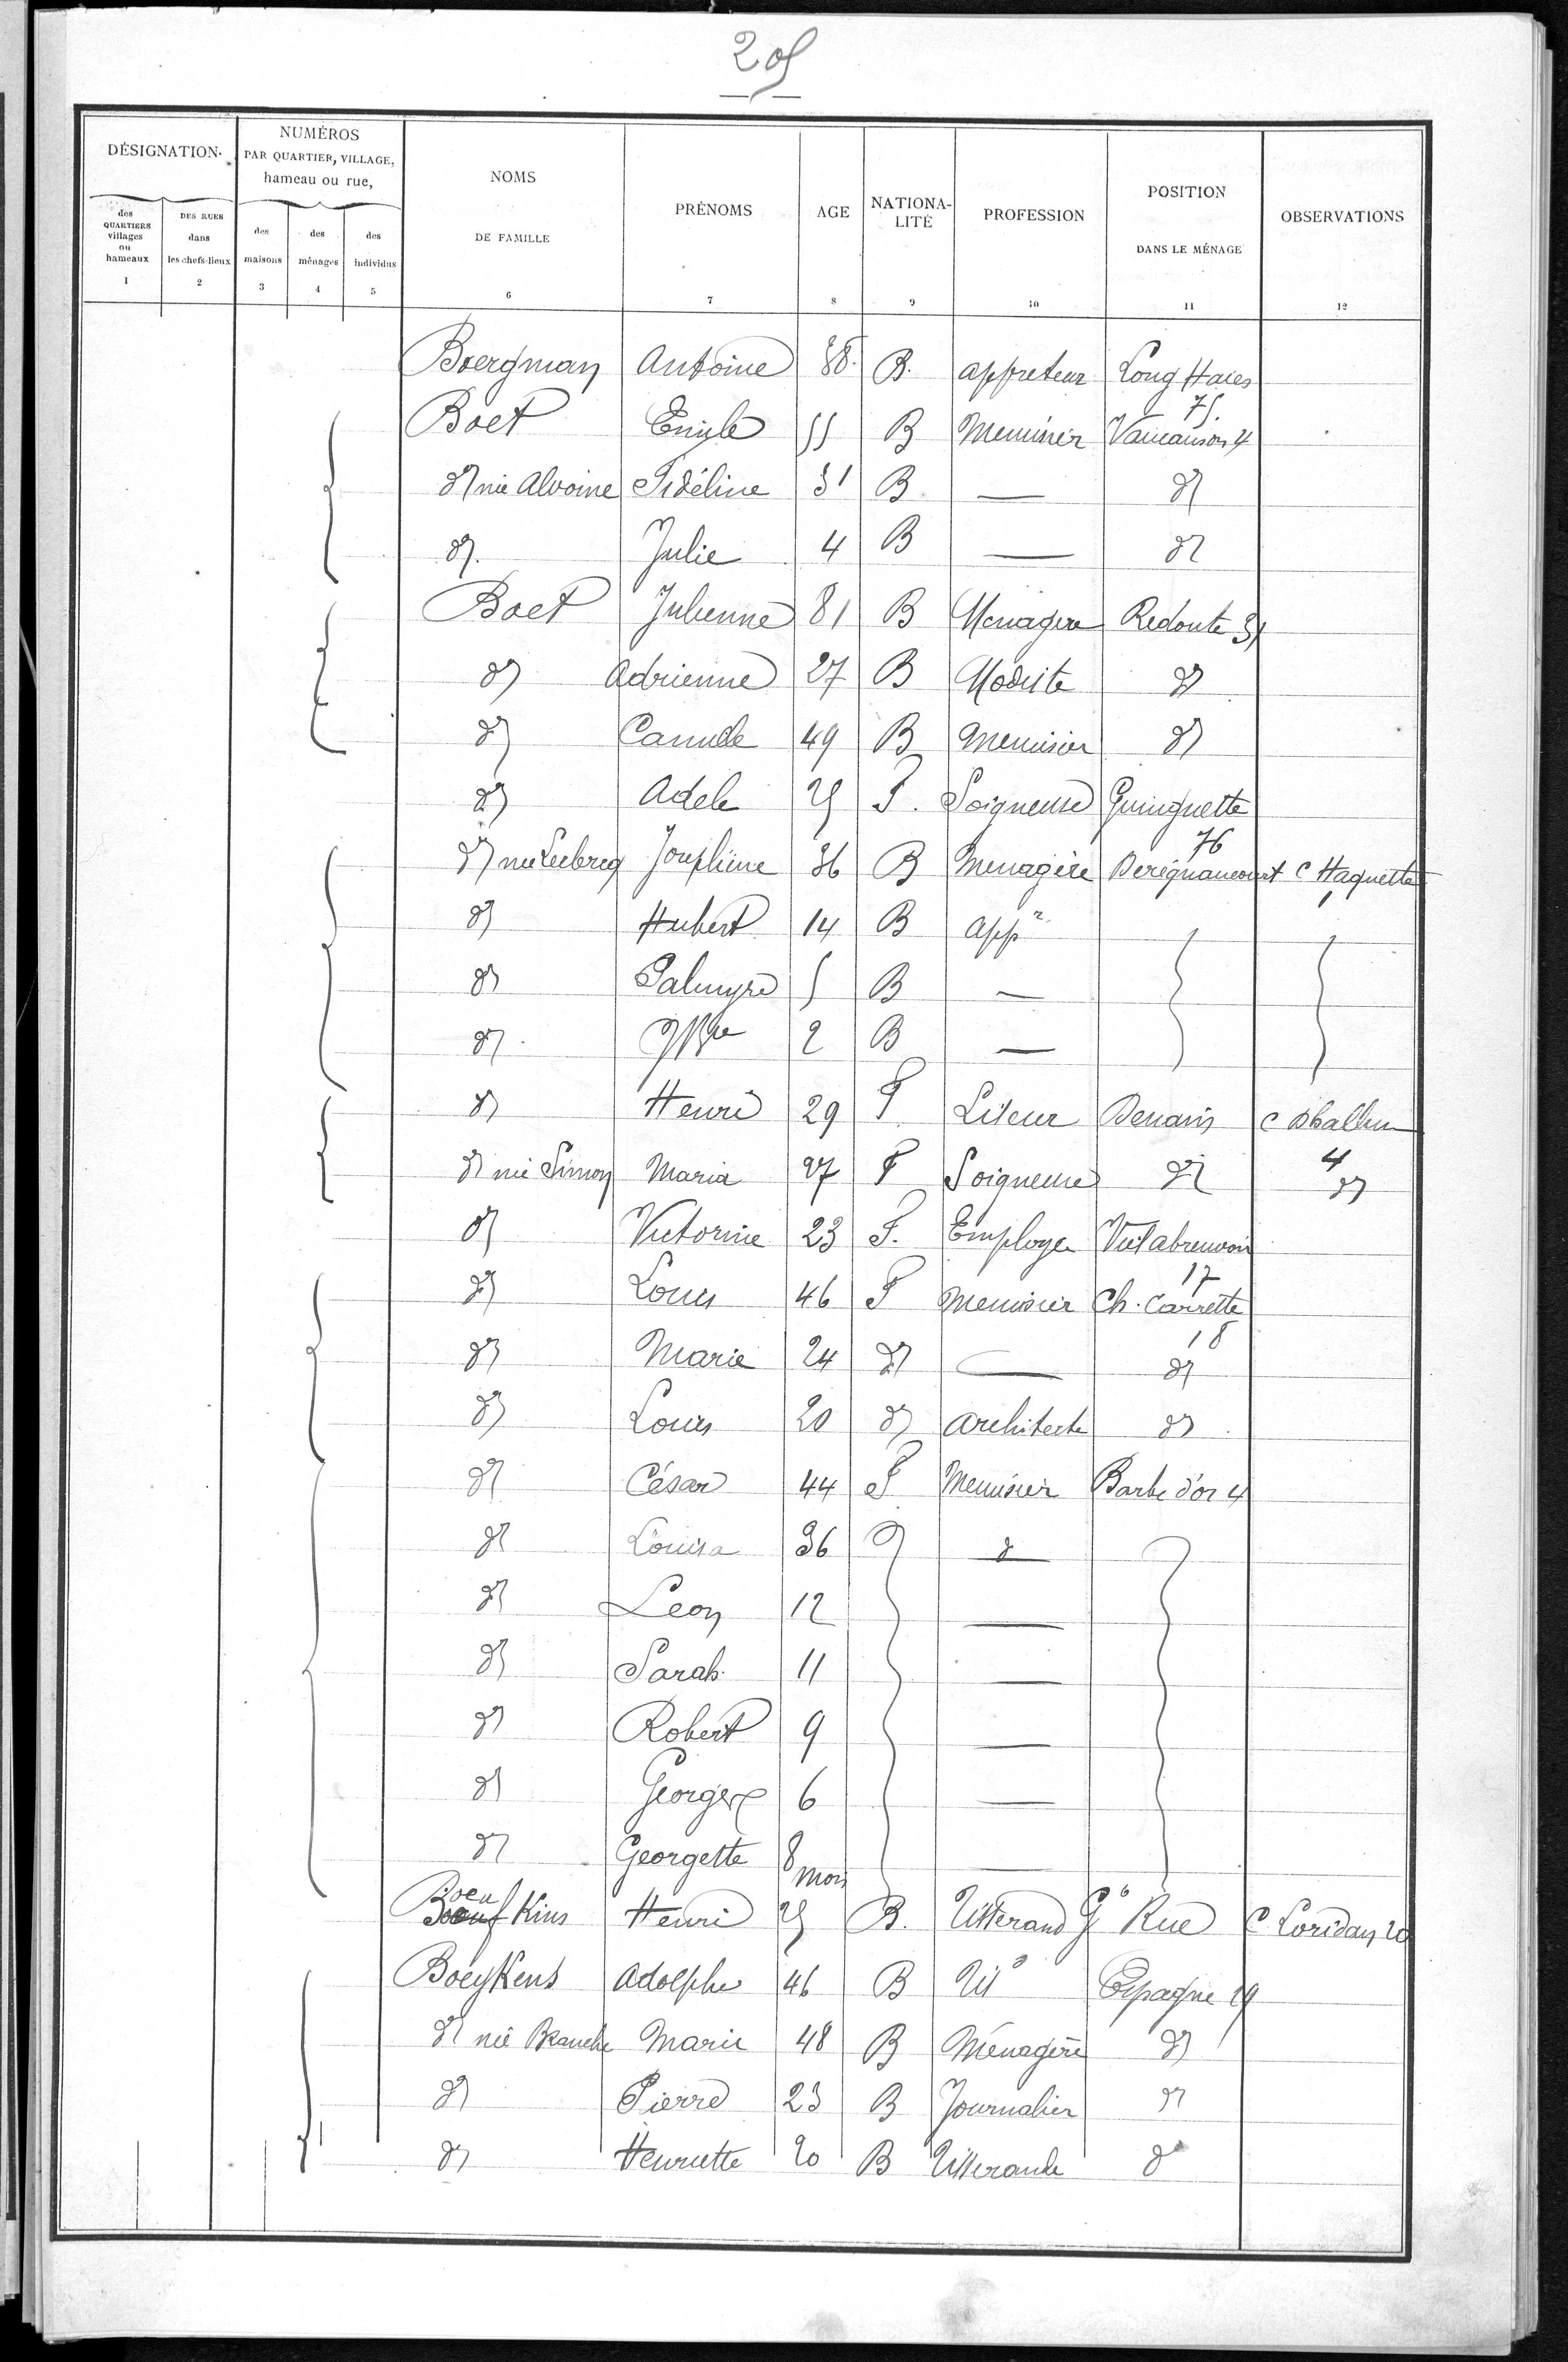 205
DÉSIGNATION
NUMÉROS PAR QUARTIER, VILLAGE, hameau ou rue,
NOMS DE FAMILLE
PRÉNOMS
AGE
NATIONALITÉ
PROFESSION
POSITION DANS LE MÉNAGE
OBSERVATIONS
des QUARTIERS villages ou hameaux
DES RUES dans les chefs-lieux
des maisons
des ménages
des individus
1 2 3 4 5 6 7 8 9 10 11 12
Boergman Antoine 38 B. appreteur Long Haies
75.
Boet Emile 55 B Menuisier Vaucanson 4
d° née Alvoine Fidéline 51 B — d°
d° Julie 4 B — d°
Boet Julienne 81 B Menagere Redoute 31
d° Adrienne 27 B Modiste d°
d° Camille 49 B Menuisier d°
d° Adele 25 F. Soigneuse Guinguette
76
d° née Leclercq Joséphine 36 B Menagère Deregnaucourt c Haquette
1
d° Hubert 14 B app^r
d° Palmyre 5 B —
d° JBte 2 B —
d° Henri 29 F Liseur Denain c Dhallun
4
d° née Simon Maria 27 F Soigneuse d° d°
d° Victorine 23 F. Employée Viel abreuvoir
17
d° Louis 46 F Menuisier Ch. Carrette
18
d° Marie 24 d° — d°
d° Louis 20 d° architecte d°
d° César 44 F Menuisier Barbe d'or 4
d° Louisa 36 d° —
d° Leon 12 —
d° Sarah 11 —
d° Robert 9 —
d° Georges 6 —
d° Georgette 8 mois —
Boeufkins Henri 25 B. Tisserand G^de Rue C Loridan 20
Boeykens Adolphe 46 B Tis^d Espagne 19
d° née Blanche Marie 48 B Ménagère d°
d° Pierre 23 B Journalier d°
d° Henriette 20 B Tisserande d°